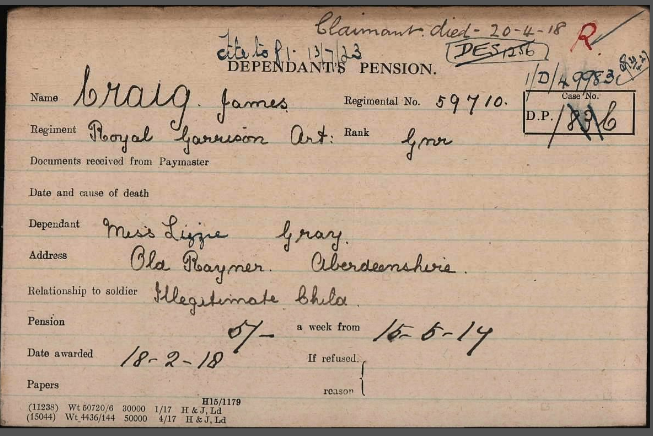 Claimant died - 20-4-18 R
Cite to P1. 13/7/23 DES1256
DEPENDANT'S PENSION.
1/D/49983
Name Craig. James Regimental No. 59710. Case No.
Regiment Royal Garrison Art: Rank Gnr D.P.
Documents received from Paymaster
Date and cause of death
Dependant Miss Lizzie Gray.
Address Old Rayner. Aberdeenshire.
Relationship to soldier Illegitimate Child.
Pension 5/- a week from 15-5-17
Date awarded 18-2-18 If refused,
Papers reason
H15/1179
(11238) Wt 50720/6 30000 1/17 H & J, Ld
(15044) Wt 4436/144 50000 4/17 H & J, Ld